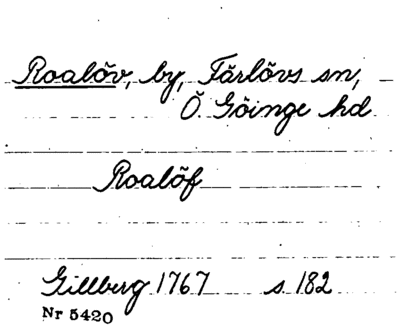 Roalöv, by, Färlövs sn,
Ö. Göinge hd
Roalöf
Gillberg 1767 s 182
Nr 5420